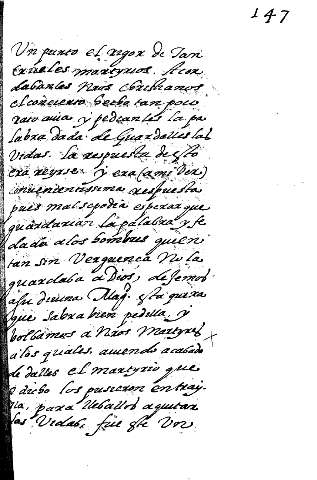 147
Un punto el rigor de Tan
crueles martyrios. Acor
dabanles Nros Christianos
el concierto hecho tan poco
rato auia y pedianles la pa
labra dada de Guardalles las
Vidas. La respuesta de esto
era reyrse, y era (a mi Ver)
conuenientissima respuesta
pues mal se podia esperar que
guardarian la palabra y fe
dada a los hombres quien
tan sin Verguenca No la
guardaba a Dios, dejemos
a su diuina Magd. esta quexa
que sabra bien pedilla, y
bolbamos a Nros Martyres
a los quales, auiendo acabado
de dalles el martyrio que
e dicho los pusieron en tray
lla, para lleballos a quitar
las Vidas, fue este Vor